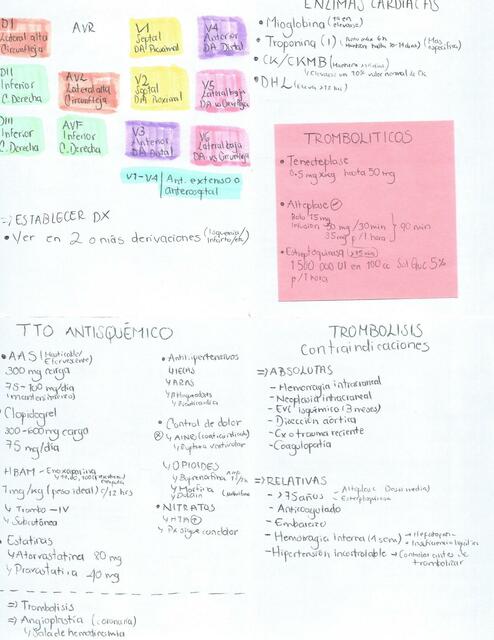 D1
Lateral alta
Circunfleja
AVR
V1
Septal
DA Proximal
V4
Anterior
DA Distal
DII
Inferior
C. Derecha
AVL
Lateral alta
Circunfleja
V2
Septal
DA Proximal
V5
Lateral baja
DA vs Circunfleja
DIII
Inferior
C. Derecha
AVF
Inferior
C. Derecha
V3
Anterior
DA Distal
V6
Lateral baja
DA vs Circunfleja
V1-V4 | Ant. extenso o
anteroseptal
=> ESTABLECER DX
• Ver en 2 o más derivaciones (Isquemia/
Infarto/etc)
ENZIMAS CARDIACAS
• Mioglobina
• Troponina (I) (Mas
específica)
• CK/CKMB
valor normal de CK
• DHL
TROMBOLITICOS
• Tenecteplase
0.5 mg x kg hasta 50 mg
• Alteplase
Bolo 15 mg
Infusión 50 mg / 30 min } 90 min
35 mg p / 1 hora
• Estreptoquinasa
1 500 000 UI en 100 cc Sol Gluc 5%
p / 1 hora
TTO ANTISQUÉMICO
• AAS (Masticable/
Efervescente)
300 mg carga
75-100 mg/día
(mantenimiento)
• Clopidogrel
300-600 mg carga
75 mg/día
HBAM - Enoxaparina
1 mg/kg (peso ideal) c/12 hrs
↳ Trombo - IV
↳ Subcutánea
• Estatinas
↳ Atorvastatina 80 mg
↳ Pravastatina 40 mg
=> Trombolisis
=> Angioplastia (coronaria)
↳ Sala de hemodinamia
• Antihipertensivos
↳ IECAS
↳ ARAS
↳ B bloqueadores
• Control de dolor
↳ AINE (contraindicado)
↳ Ruptura ventricular
↳ OPIOIDES
↳ Buprenorfina
↳ Morfina
• NITRATOS
↳ Px sigue con dolor
TROMBOLISIS
Contraindicaciones
=> ABSOLUTAS
- Hemorragia intracraneal
- Neoplasia intracraneal
- EVC isquémico (3 meses)
- Disección aórtica
- Cx o trauma reciente
- Coagulopatía
=> RELATIVAS
- >75 años → Alteplase (Dosis media)
- Anticoagulado
- Embarazo
- Hemorragia Interna (1 sem)
- Hipertensión incontrolable → Controlar antes de
trombolizar